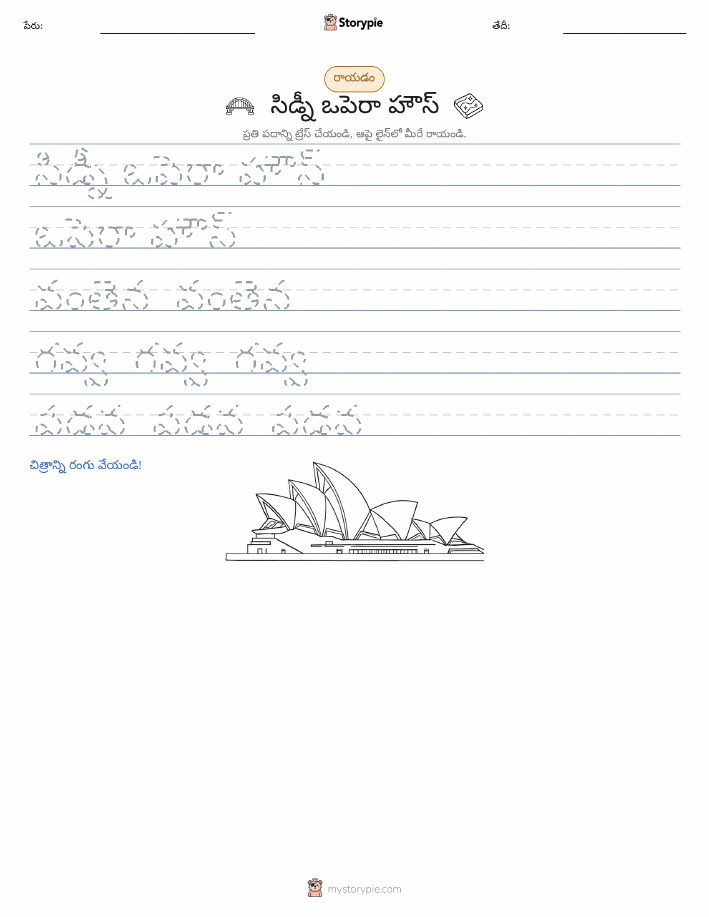 పేరు:
Storypie
తేదీ:
రాయడం
సిడ్నీ ఒపెరా హౌస్
ప్రతి పదాన్ని ట్రేస్ చేయండి, ఆపై లైన్‌లో మీరే రాయండి.
సిడ్నీ ఒపెరా హౌస్
ఒపెరా హౌస్
వంతెన వంతెన
గవ్వ గవ్వ గవ్వ
పడవ పడవ పడవ
చిత్రాన్ని రంగు వేయండి!
mystorypie.com